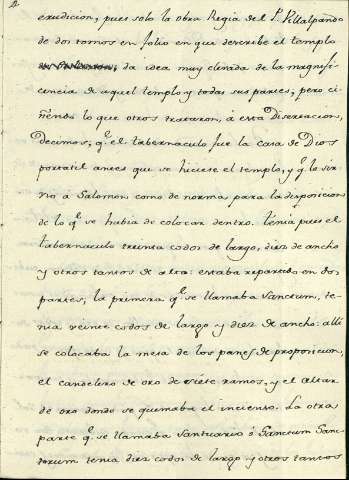 2
erudicion, pues solo la obra Regia del P. Villalpando
de dos tomos en folio en que describe el templo
da idea muy elevada de la magnifi-
cencia de aquel templo y todas sus partes, pero ci-
ñendo lo que otros trataron, á esta Disertacion,
Decimos, q.e el tabernaculo fue la casa de Dios
portatil antes que se hiciese el templo, y q.e lo sir-
vió á Salomon como de norma para la disposicion
de lo q.e se habia de colocar dentro. Tenia pues el
tabernaculo treinta codos de largo, diez de ancho
y otros tantos de alto: estaba repartido en dos
partes; la primera q.e se llamaba Sanctum, te-
nia veinte codos de largo y diez de ancho: alli
se colocaba la mesa de los panes de proposicion,
el candelero de oro de siete ramos, y el altar
de oro donde se quemaba el incienso. La otra
parte q.e se llamaba Santuario ó Sanctum Sanc-
torum tenia diez codos de largo y otros tantos